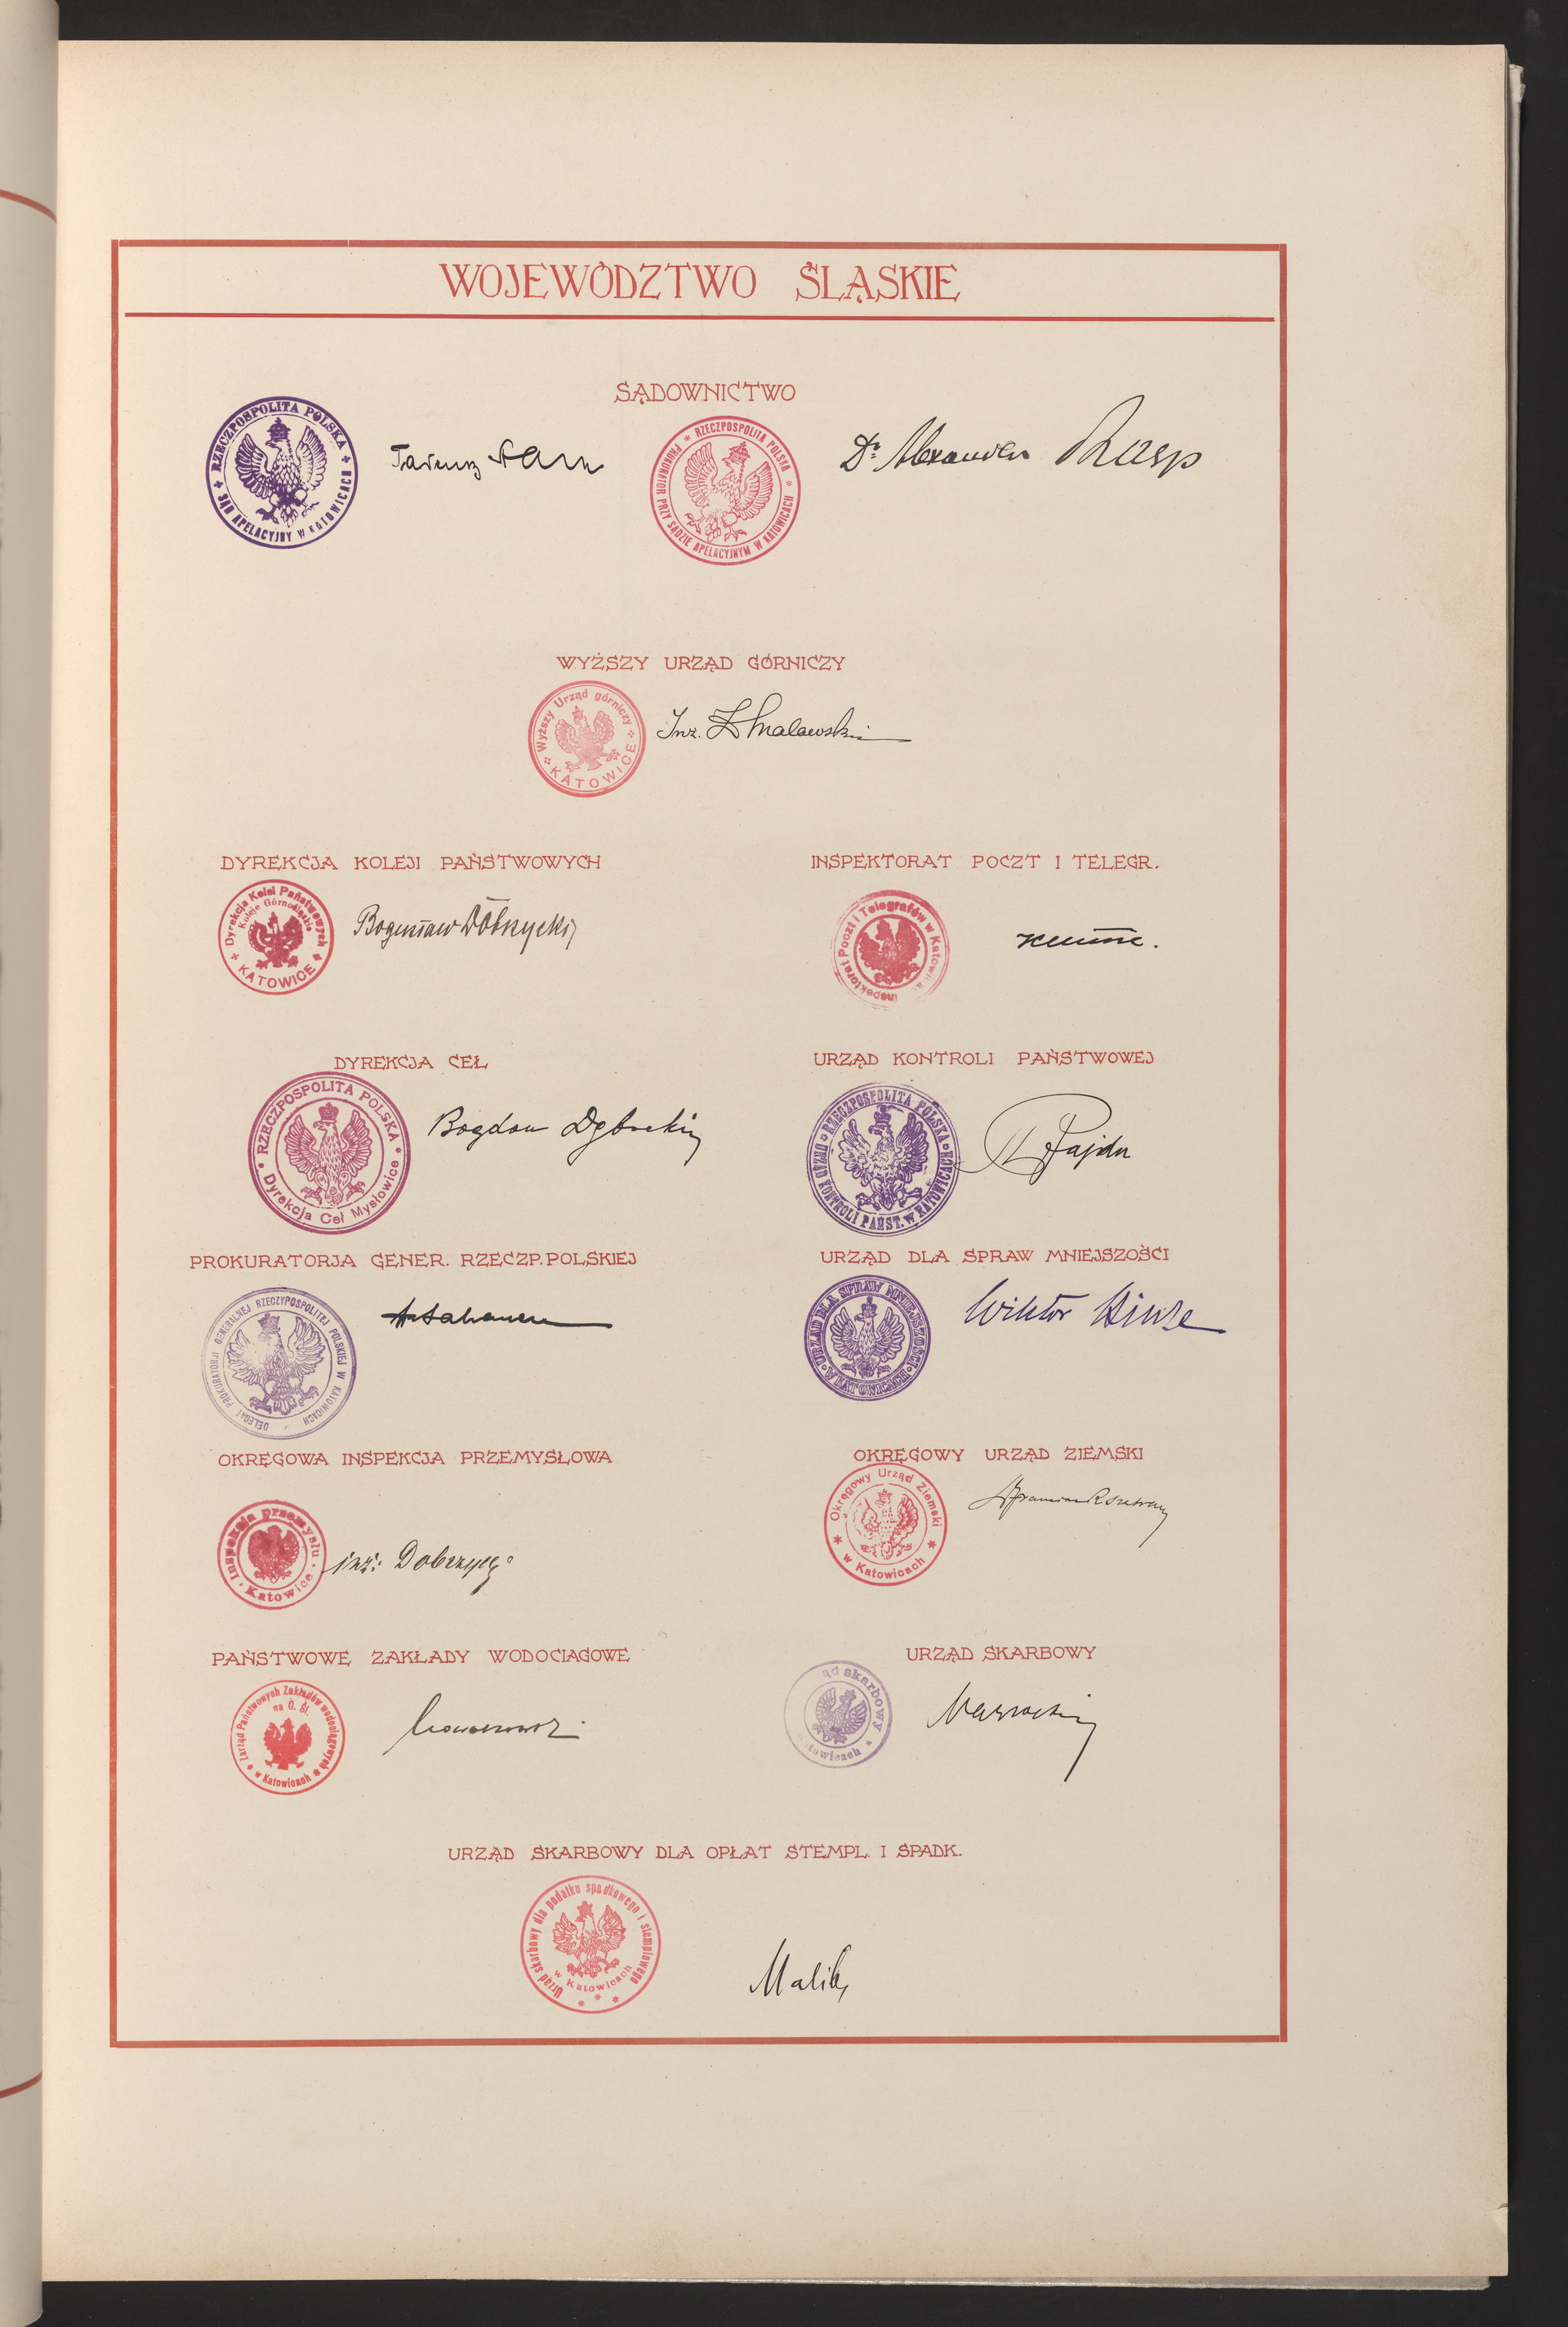 WOJEWÓDZTWO ŚLĄSKIE
SĄDOWNICTWO
RZECZPOSPOLITA POLSKA
SĄD APELACYJNY W KATOWICACH
RZECZPOSPOLITA POLSKA
PROKURATOR PRZY SĄDZIE APELACYJNYM W KATOWICACH
Dr. Alexander
WYŻSZY URZĄD GÓRNICZY
Wyższy Urząd górniczy
KATOWICE
Inż.
DYREKCJA KOLEJI PAŃSTWOWYCH
Dyrekcja Kolei Państwowych
Koleje Górnośląskie
KATOWICE
Bogusław Dobrzycki
INSPEKTORAT POCZT I TELEGR.
Inspektorat Poczt i Telegrafów w
DYREKCJA CEŁ
RZECZPOSPOLITA POLSKA
Dyrekcja Ceł Mysłowice
Bogdan
URZĄD KONTROLI PAŃSTWOWEJ
RZECZPOSPOLITA POLSKA
URZĄD KONTROLI PAŃST. W KATOWICACH
Pajdu
PROKURATORJA GENER. RZECZP. POLSKIEJ
DELEGAT PROKURATORJI GENERALNEJ RZECZYPOSPOLITEJ POLSKIEJ W KATOWICACH
URZĄD DLA SPRAW MNIEJSZOŚCI
URZĄD DLA SPRAW MNIEJSZOŚCI
W KATOWICACH
Wiktor Hinze
OKRĘGOWA INSPEKCJA PRZEMYSŁOWA
Inspekcja przemysłu
Katowice
inż: Dobrzycki
OKRĘGOWY URZĄD ZIEMSKI
Okręgowy Urząd Ziemski
w Katowicach
PAŃSTWOWE ZAKŁADY WODOCIĄGOWE
Zarząd Państwowych Zakładów wodociągowych
na G. Śl.
w Katowicach
URZĄD SKARBOWY
skarbowy
URZĄD SKARBOWY DLA OPŁAT STEMPL. I SPADK.
Urząd skarbowy dla podatku spadkowego i stemplowego
w Katowicach
Malik